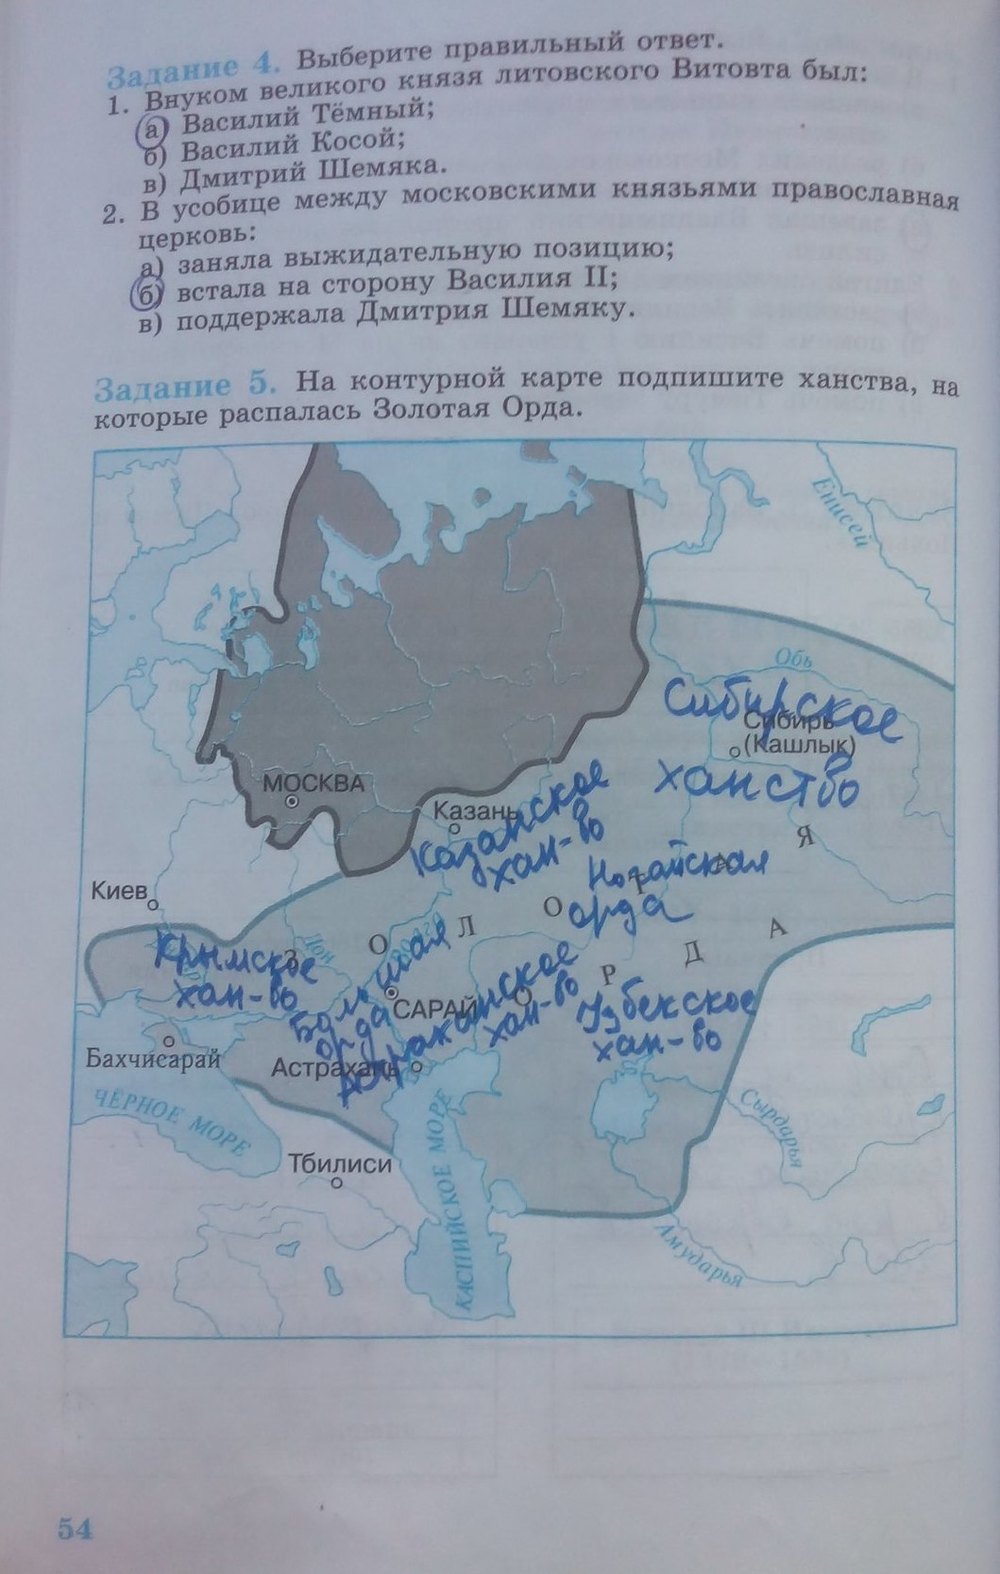 Задание 4. Выберите правильный ответ.
1. Внуком великого князя литовского Витовта был:
а) Василий Тёмный;
б) Василий Косой;
в) Дмитрий Шемяка.
2. В усобице между московскими князьями православная
церковь:
а) заняла выжидательную позицию;
б) встала на сторону Василия II;
в) поддержала Дмитрия Шемяку.
Задание 5. На контурной карте подпишите ханства, на
которые распалась Золотая Орда.
Енисей
Обь
Сибирское
Сибирь
(Кашлык)
ханство
МОСКВА
Казань
Казанское
хан-во
Киев
Ногайская
орда
З О Л О Т А Я
О Р Д А
Крымское
хан-во
Дон
Волга
Большая
орда
САРАЙ
Астраханское
хан-во
Узбекское
хан-во
Бахчисарай
Астрахань
ЧЁРНОЕ МОРЕ
КАСПИЙСКОЕ МОРЕ
Сырдарья
Тбилиси
Амударья
54